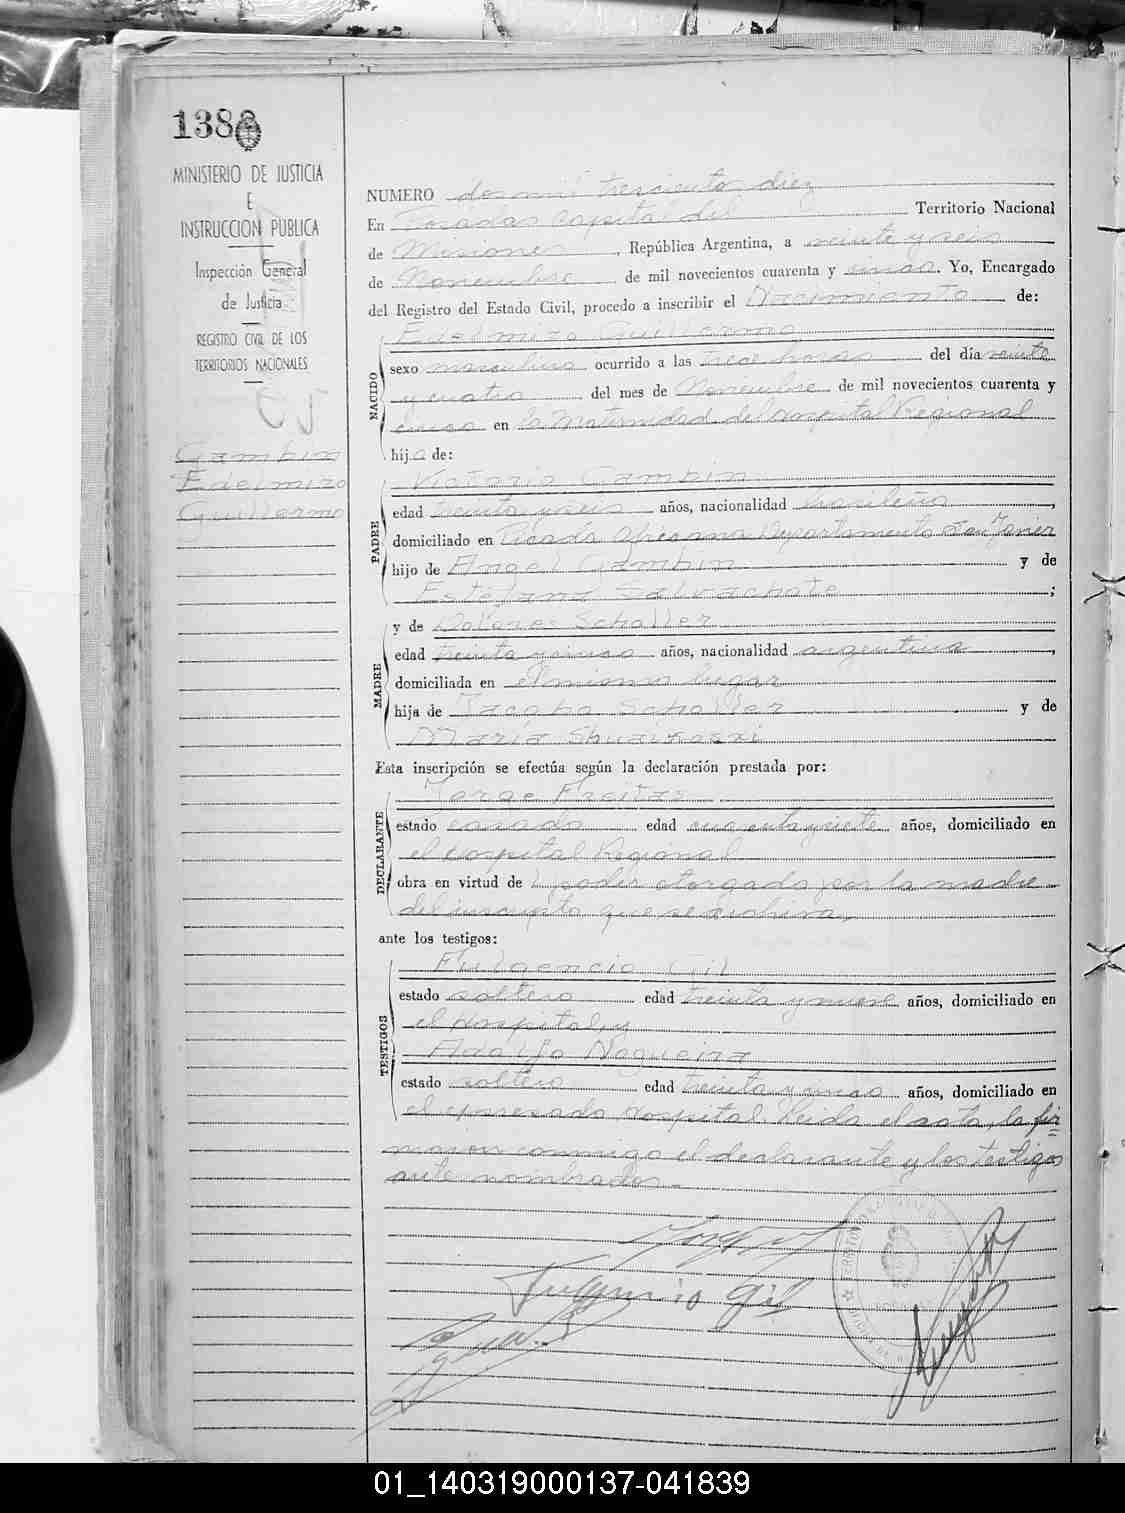 138
MINISTERIO DE JUSTICIA
E
INSTRUCCION PUBLICA
Inspección General
de Justicia
REGISTRO CIVIL DE LOS
TERRITORIOS NACIONALES
Gambin
Edelmiro
Guillermo
NUMERO dos mil trescientos diez
En Posadas capital del Territorio Nacional
de Misiones, República Argentina, a veinte y seis
de Noviembre de mil novecientos cuarenta y cinco. Yo, Encargado
del Registro del Estado Civil, procedo a inscribir el Nacimiento de:
NACIDO
Edelmiro Guillermo
sexo masculino ocurrido a las trece horas del día veinte
y cuatro del mes de Noviembre de mil novecientos cuarenta y
cinco en la Maternidad del Hospital Regional
hijo de:
PADRE
Victorio Gambin
edad treinta y seis años, nacionalidad brasileña,
domiciliado en Picada Africana Departamento San Javier
hijo de Angel Gambin y de
Estefana;
MADRE
y de Dolores Schaller
edad treinta y cinco años, nacionalidad argentina,
domiciliada en el mismo lugar
hija de Jacobo Schaller y de
Maria
Esta inscripción se efectúa según la declaración prestada por:
DECLARANTE
Jorge Freitas
estado casado edad cuarenta y siete años, domiciliado en
el Hospital Regional
obra en virtud de poder otorgado por la madre
del inscripto que se archiva
ante los testigos:
TESTIGOS
Fulgencio Gil
estado soltero edad treinta y nueve años, domiciliado en
el Hospital y
Adolfo Nogueira
estado soltero edad treinta y cinco años, domiciliado en
el expresado Hospital. Leida el acta, la fir
maron conmigo el declarante y los testigos
ante nombrados.-
Fulgencio Gil
01_140319000137-041839